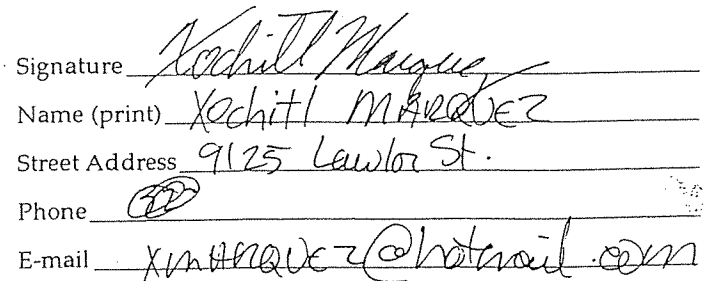 Signature Xochitl Marquez
Name (print) Xochitl MARQUEZ
Street Address 9125 Lawlor St.
Phone
E-mail XMARQUEZ@hotmail.com